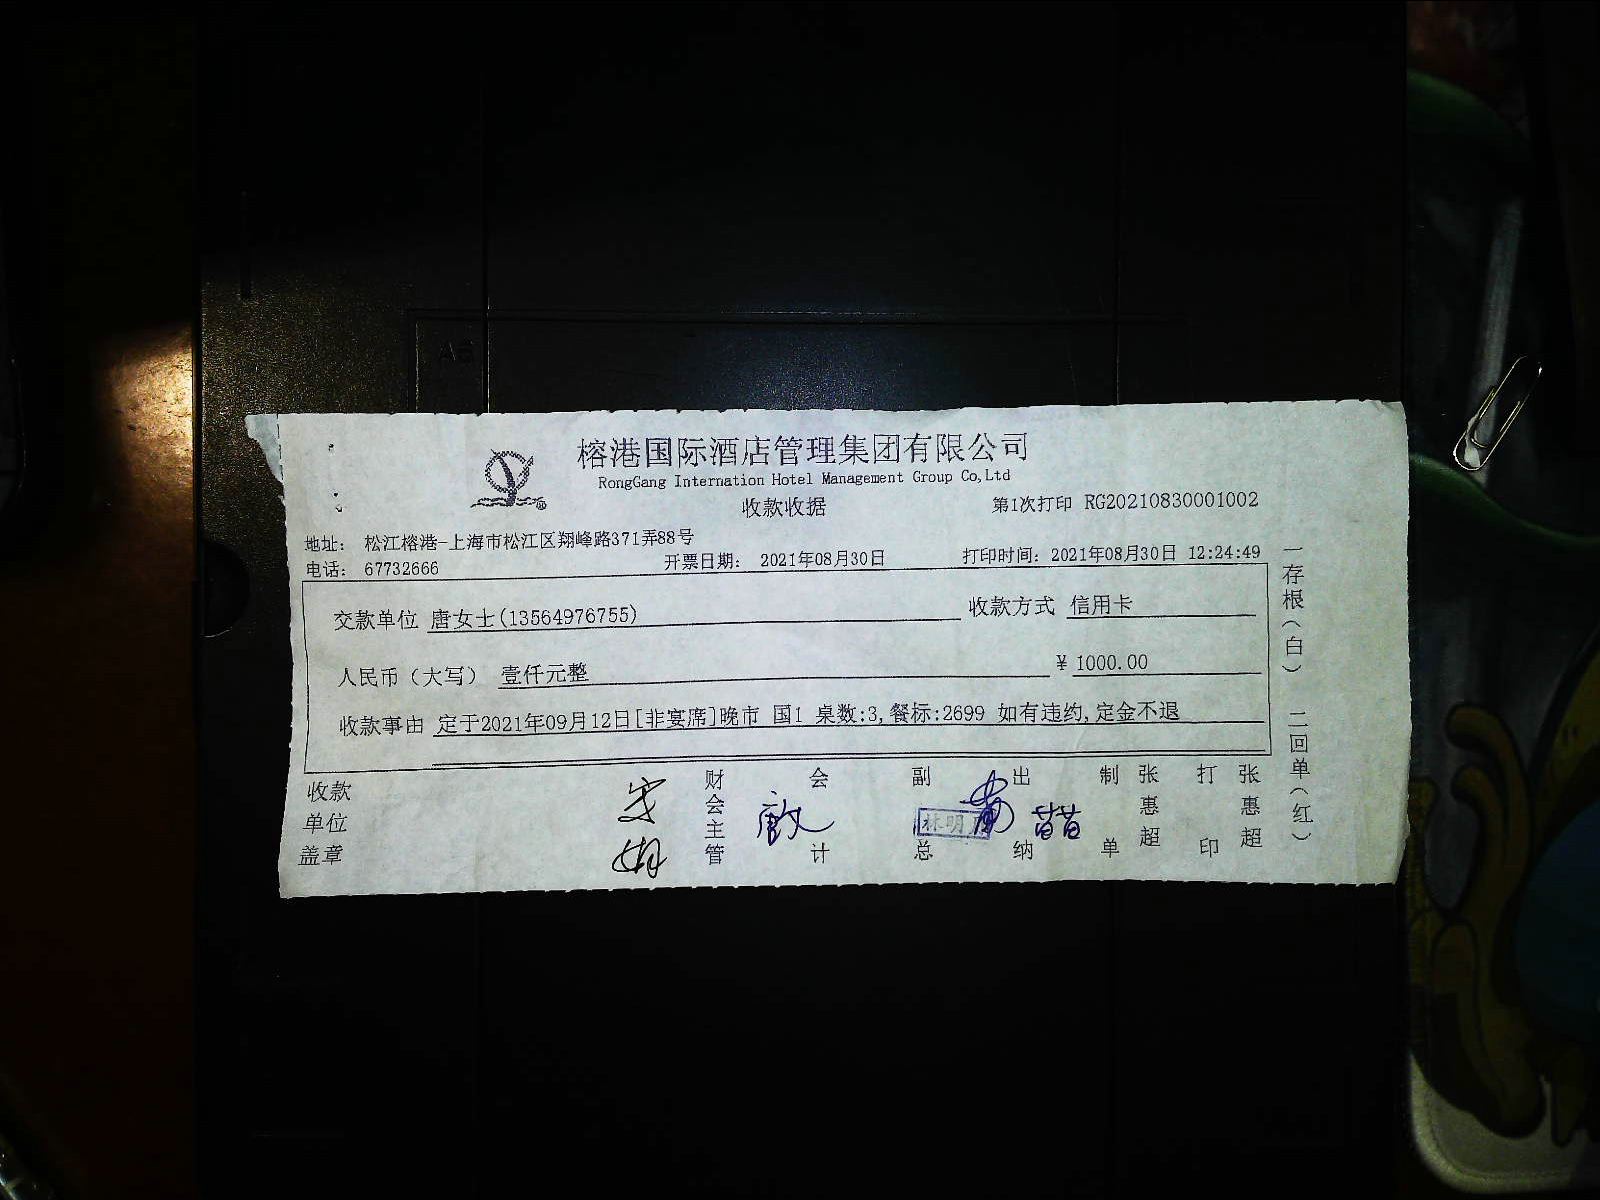 榕港国际酒店管理集团有限公司
RongGang Internation Hotel Management Group Co,Ltd
收款收据
第1次打印 RG20210830001002
地址： 松江榕港-上海市松江区翔峰路371弄88号
电话： 67732666
开票日期： 2021年08月30日
打印时间：2021年08月30日 12:24:49
交款单位 唐女士(13564976755)
收款方式 信用卡
人民币（大写） 壹仟元整
￥ 1000.00
收款事由 定于2021年09月12日[非宴席]晚市 国1 桌数:3,餐标:2699 如有违约,定金不退
收款
单位
盖章
财会主管
会计
副总
出纳
制单
张惠超
打印
张惠超
一存根（白） 二回单（红）
A5